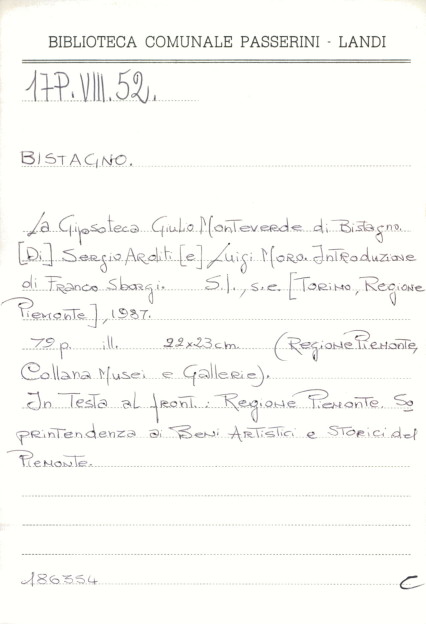 BIBLIOTECA COMUNALE PASSERINI - LANDI
17P.VIII.52.
BISTAGNO.
La Gipsoteca Giulio Monteverde di Bistagno.
[Di] Sergio Arditi [e] Luigi Moro. Introduzione
di Franco Sborgi. S.l., s.e. [Torino, Regione
Piemonte], 1987.
79 p. ill. 22x23 cm. (Regione Piemonte,
Collana Musei e Gallerie).
In testa al front.: Regione Piemonte. So
printendenza ai Beni Artistici e Storici del
Piemonte.
186354 C